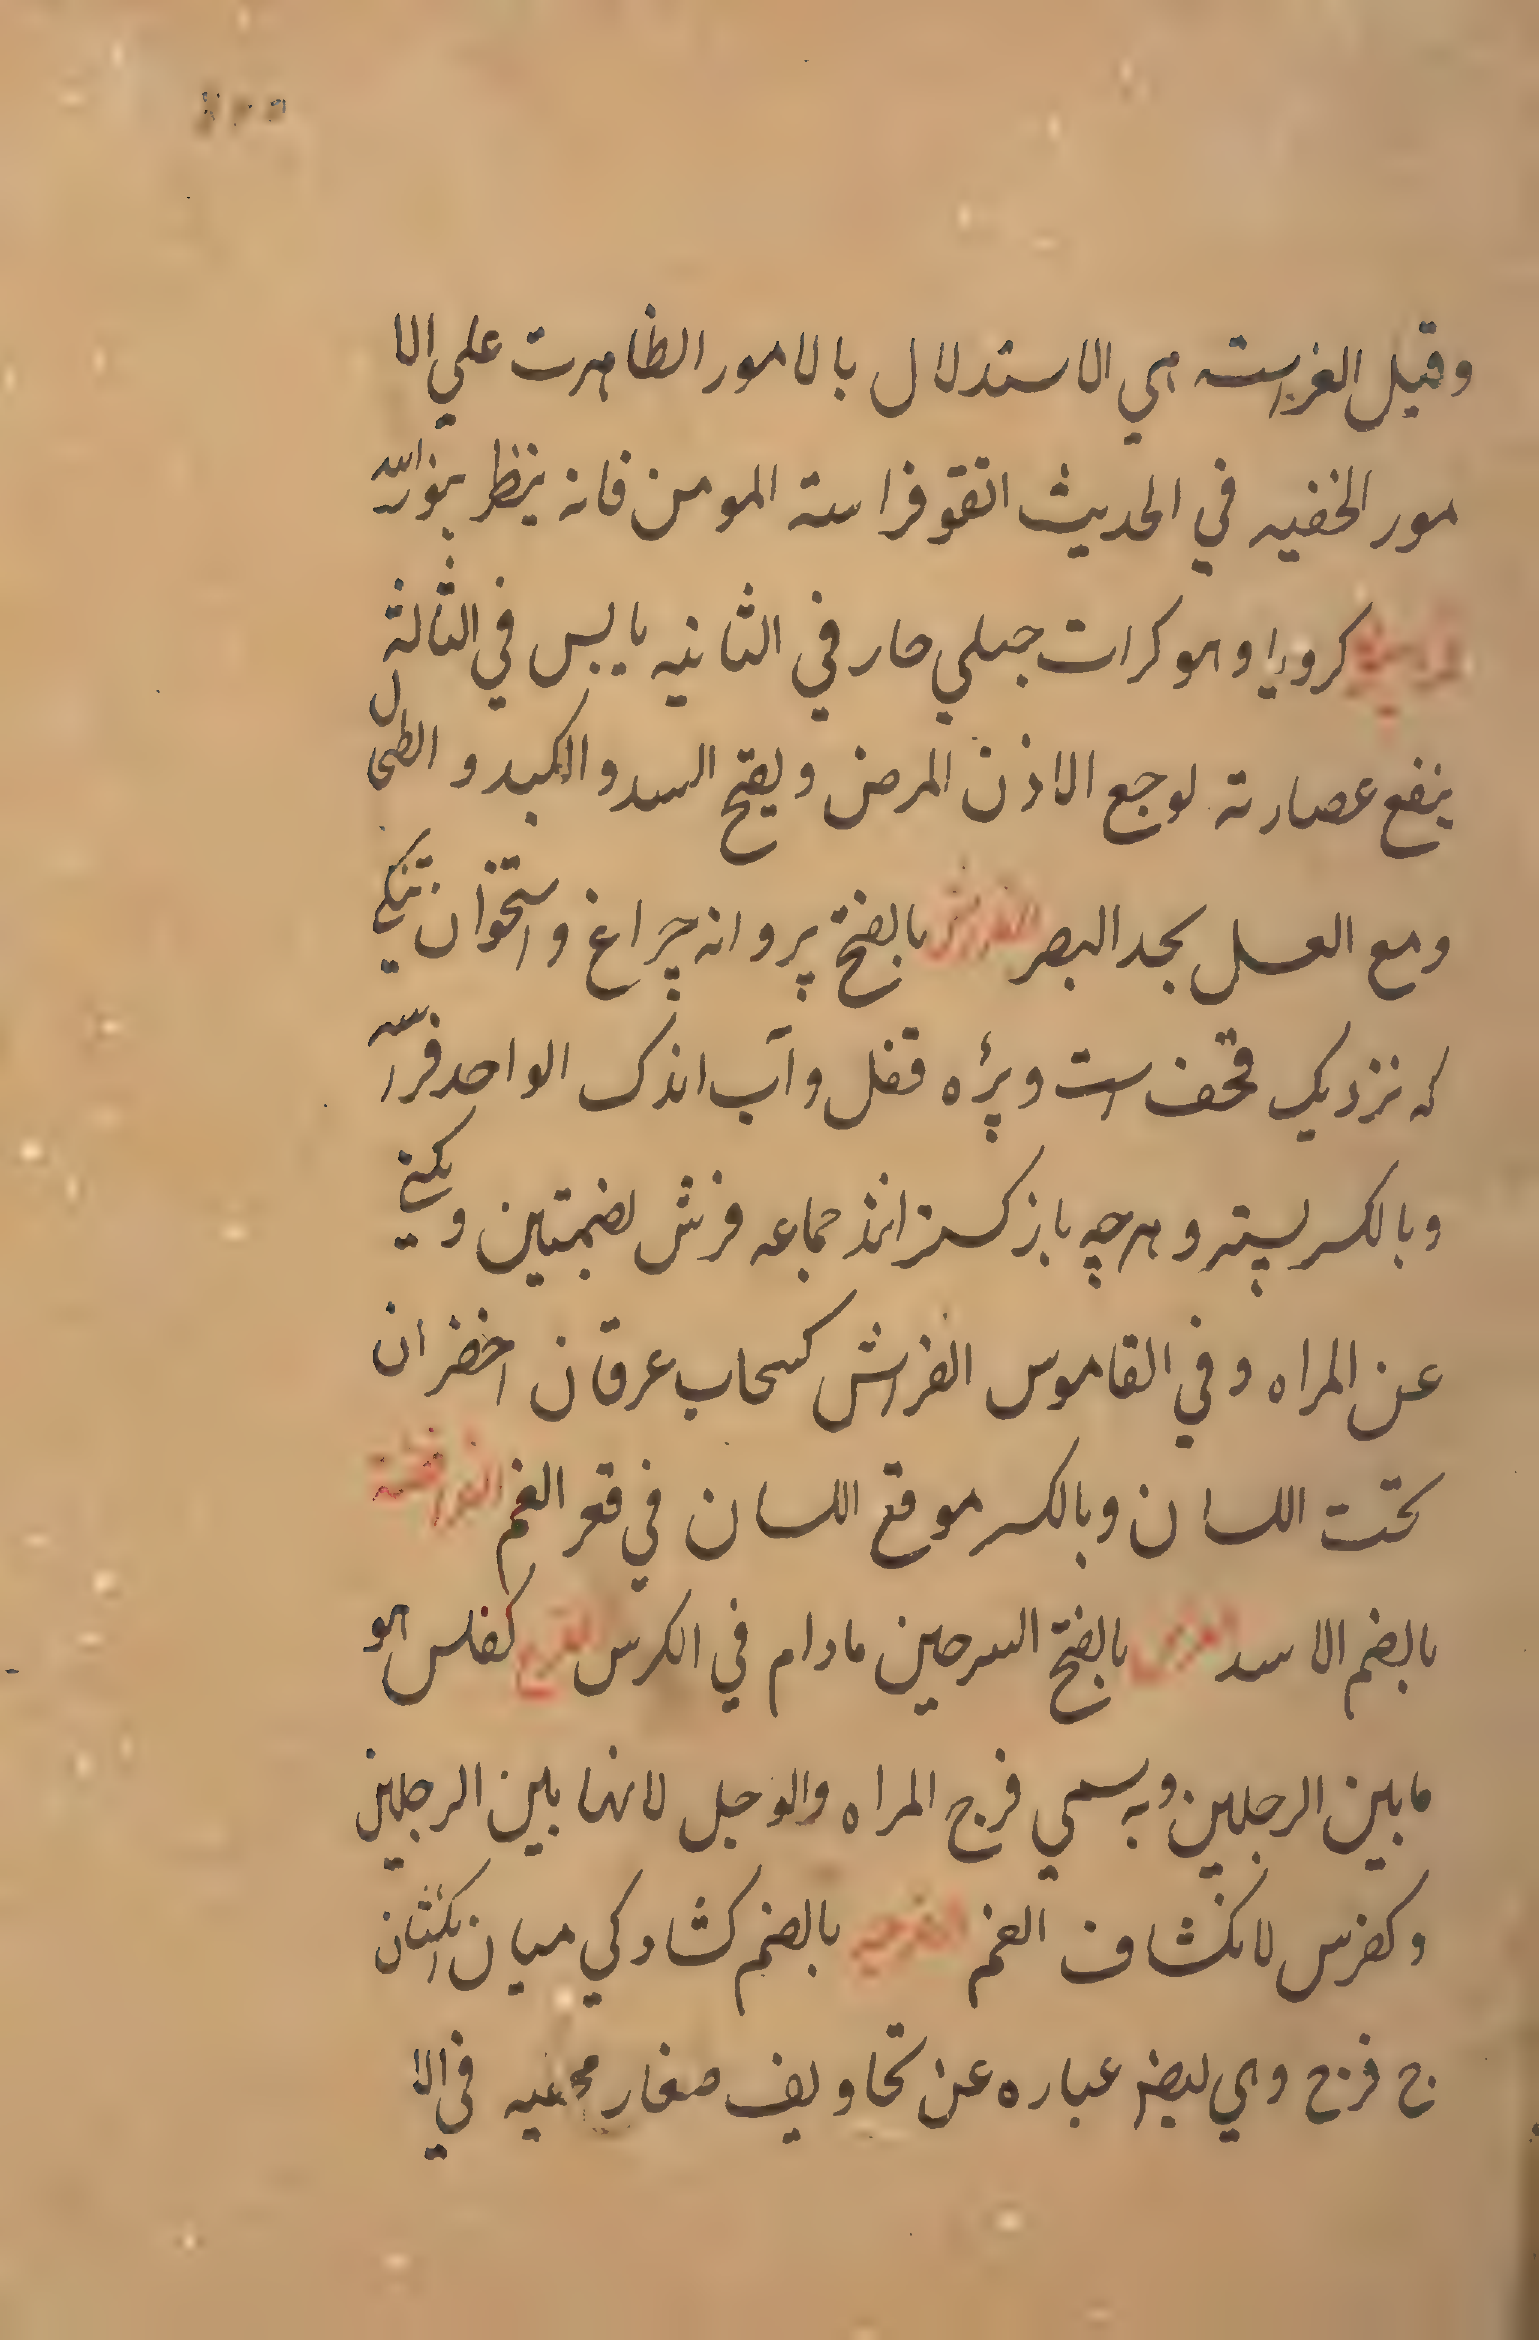 وقيل الفراسته هي الاستدلال بالامور الظاهرت علي الا
مور الخفيه في الحديث اتقو فراسته المومن فانه ينظر بنور الله
كرويا وهو كرات جبلي حار في الثانيه يا يبس في الثالثة
ينفع عصارته لوجع الاذن المرض و يفتح السدو الكبد و الطحال
ومع العسل يحد البصر الفراش بالفتح پروانه چراغ و استخوان تنكي
كه نزديك قحف ست و پرٔه قفل و آب اندك الواحد فراسه
وبالكسر پسته و هرچه باز كسترانند جماعه فرش بضمتين و يكني
عن المراه وفي القاموس الفراش كسحاب عرقان اخضران
تحت اللسان وبالكسر موقع اللسان في قعر الفم الفرافصة
بالضم الاسد الفرث بالفتح السرجين مادام في الكرس الفرج كفلس هو
مابين الرجلين وبه سمي فرج المراه والرجل لانهما بين الرجلين
وكفرس لانكشاف الغم الفرجه بالضم كشادكي ميان انكشتان
ج فرج وهي ايضا عباره عن تجاويف صغار في الا